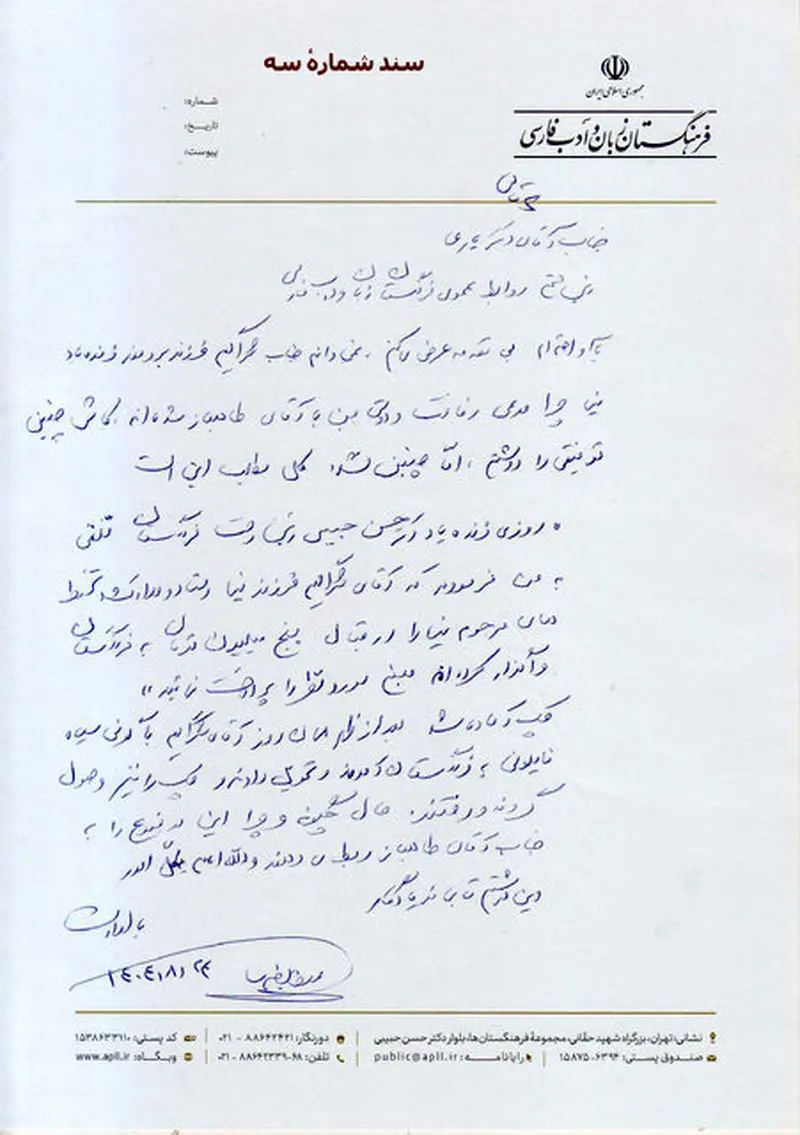 سند شمارهٔ سه
جمهوری اسلامی ایران
فرهنگستان زبان و ادب فارسی
شماره:
تاریخ:
پیوست:
جناب آقای دکتر
روابط عمومی فرهنگستان زبان و ادب فارسی
با احترام بی مقدمه عرض می‌کنم، نمی‌دانم جناب شراگیم فرزند برومند زنده‌یاد
نیما چرا مدعی رفاقت من با آقای طاهباز شده‌اند. کاش چنین
توفیقی را داشتم، اما چنین نشد. کل مطلب این است
روزی زنده یاد دکتر حسن حبیبی ریاست فرهنگستان تلفنی
به من فرمودند که آقای شراگیم فرزند نیما
مرحوم نیما را در قبال پنج میلیون تومان به فرهنگستان
واگذار کرده‌اند مبلغ مورد نظر را پرداخت نمائید»
چک آماده شد بعد از ظهر همان روز آقای شراگیم با گونی سیاه
نایلونی به فرهنگستان آمدند و تحویل دادند و چک را نیز وصول
کردند و رفتند. حال چگونه و چرا این موضوع را به
جناب آقای طاهباز ربط می‌دهند والله اعلم
این نوشتم تا بماند یادگار
با ارادت
۱۴۰۴٫۸٫۲۴
نشانی: تهران، بزرگراه شهید حقانی، مجموعهٔ فرهنگستان‌ها، بلوار دکتر حسن حبیبی
دورنگار: ۸۸۶۴۲۴۲۱ - ۰۲۱
کد پستی: ۱۵۳۸۶۳۳۱۱۰
صندوق پستی: ۶۳۹۴-۱۵۸۷۵
رایانامه: public@apll.ir
تلفن: ۶۸-۸۸۶۴۲۳۳۹ - ۰۲۱
وبگاه: www.apll.ir